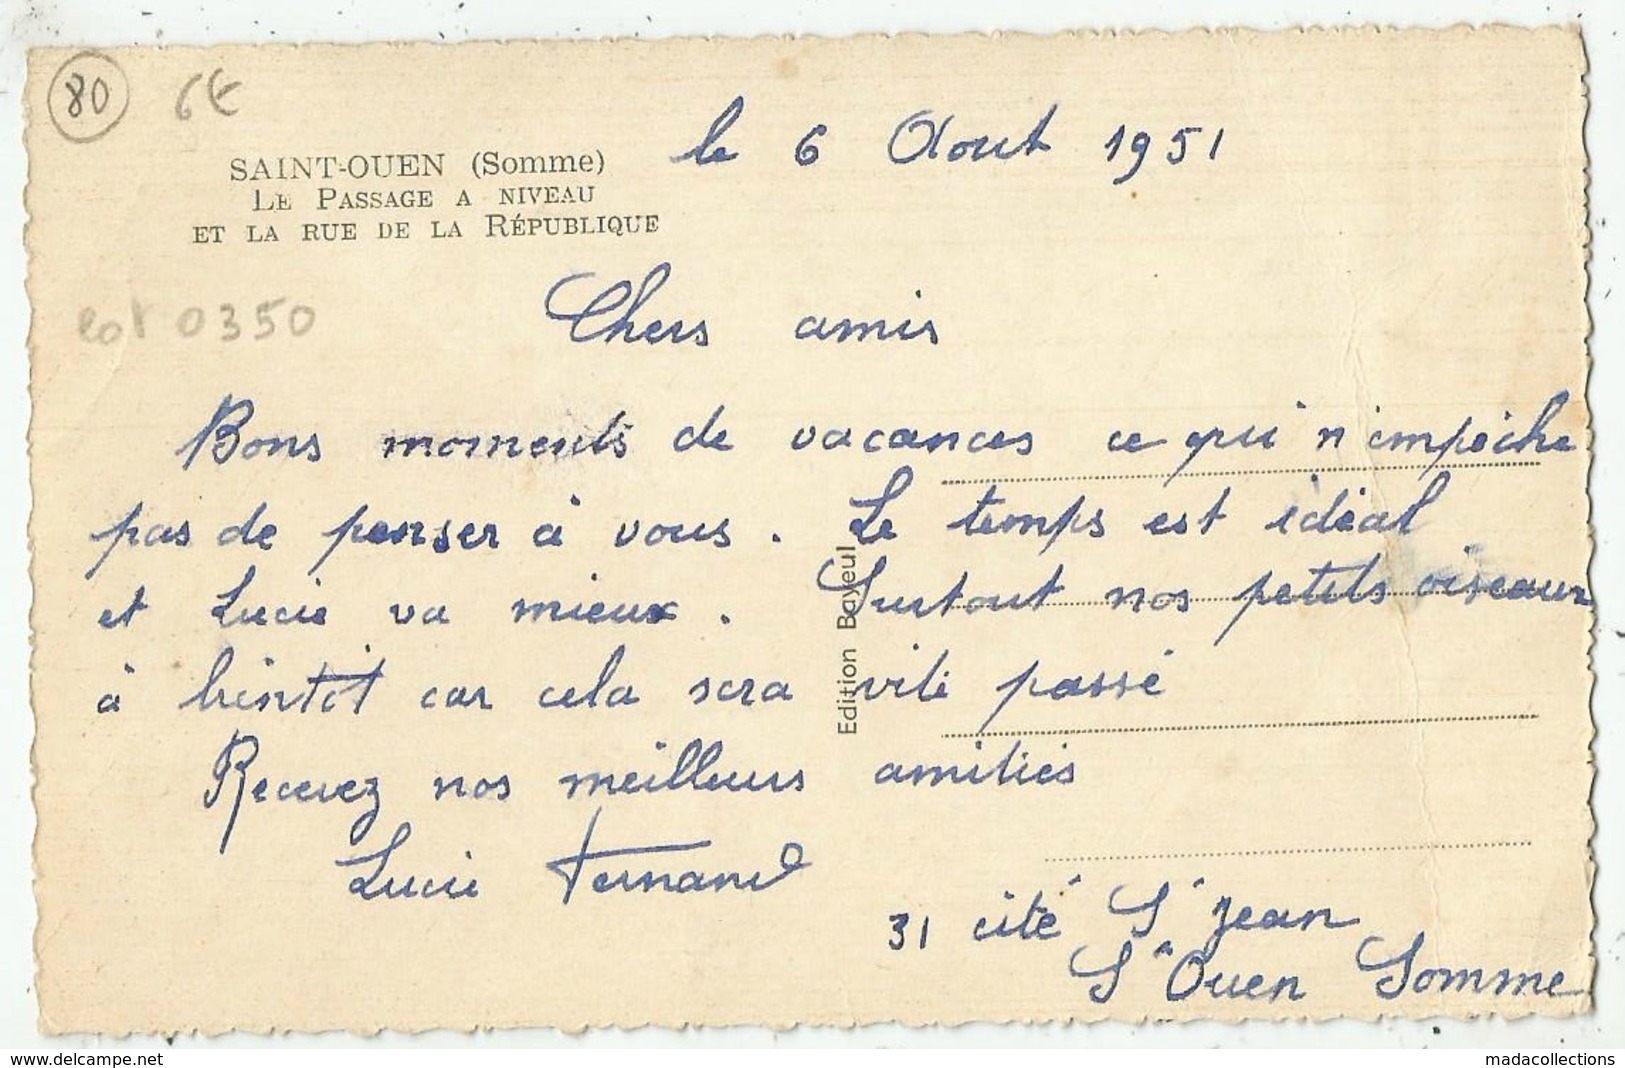 80 6€
SAINT-OUEN (Somme)
LE PASSAGE A NIVEAU
ET LA RUE DE LA RÉPUBLIQUE
le 6 Aout 1951
lot 0350
Chers amis
Bons moments de vacances ce qui n'empêche
pas de penser à vous. Le temps est idéal
et Lucie va mieux. Surtout nos petits oiseaux
à bientôt car cela sera vite passé
Recevez nos meilleurs amitiés
Lucie Fernand
31 cité St Jean
St Ouen Somme
Edition Bayeul
www.delcampe.net
madacollections